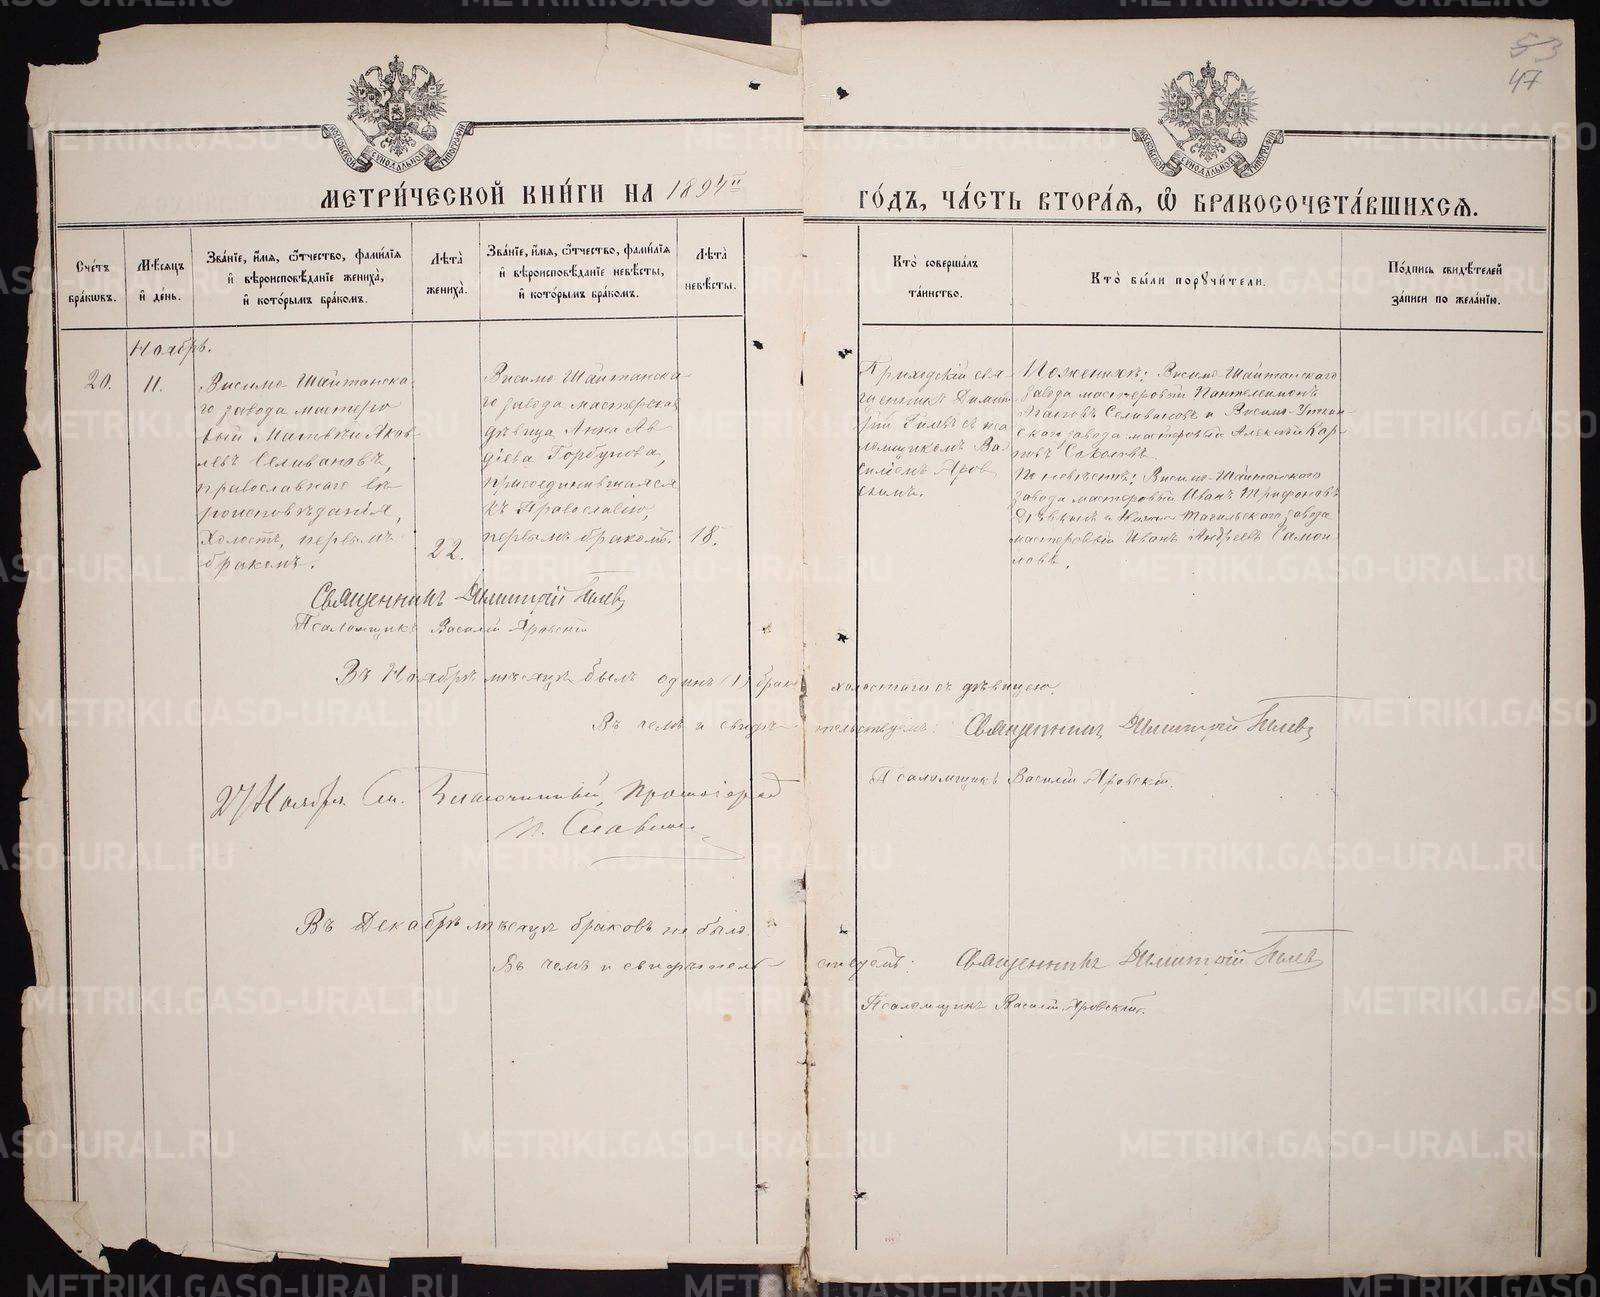 53
47
МОСКОВСКОЙ СУНОДАЛЬНОЙ ТИПОГРАФІИ
МОСКОВСКОЙ СУНОДАЛЬНОЙ ТИПОГРАФІИ
МЕТРИ́ЧЕСКОЙ КНИ́ГИ НА 1894й
ГО́ДЪ, ЧА́СТЬ ВТОРА́Я, Ѽ БРАКОСОЧЕТА́ВШИХСЯ.
Сче́тъ бра́кѡвъ.
Мѣ́сяцъ и҆ де́нь.
Зва́ніе, и҆́мя, ѻ҆́тчество, фами́лія
и҆ вѣроисповѣ́даніе жениха̀,
и҆ кото́рымъ бра́комъ.
Лѣ́та̀ жениха̀.
Зва́ніе, и҆́мя, ѻ҆́тчество, фами́лія
и҆ вѣроисповѣ́даніе невѣ́сты,
и҆ кото́рымъ бра́комъ.
Лѣ́та̀ невѣ́сты.
Кто̀ соверша́лъ
та́инство.
Кто̀ бы́ли поручи́тели.
По́дпись свидѣ́телей
за́писи по жела́нію.
Ноябрь.
20.
11.
Висимо-Шайтанска-
го завода мастеро-
вый Матвѣй Яков-
левъ Селивановъ,
православнаго вѣ-
роисповѣданія,
холостъ, первымъ
бракомъ.
22.
Висимо-Шайтанска-
го завода мастерская
дѣвица Анна Ав-
діева Горбунова,
присоединившаяся
къ Православію,
первымъ бракомъ.
18.
Приходскій свя-
щенникъ Димит-
рій Гилевъ съ пса-
ломщикомъ Ва-
силіемъ Яров-
скимъ.
По женихѣ: Висимо-Шайтанскаго
завода мастеровый Пантелеимонъ
Яковъ Селивановъ и Висимо-Уткин-
скаго завода мастеровый Алексѣй Кар-
повъ
По невѣстѣ: Висимо-Шайтанскаго
завода мастеровый Иванъ Трифоновъ
и Нижне-Тагильскаго завода
мастеровый Иванъ Андреевъ Самой-
ловъ.
Священникъ Димитрій Гилевъ
Псаломщикъ Василій Яровскій
Въ Ноябрѣ мѣсяцѣ былъ одинъ (1) бракъ холостаго съ дѣвицею.
Въ чемъ и свидѣтельствуемъ: Священникъ Димитрій Гилевъ
Псаломщикъ Василій Яровскій.
27 Ноября См. Благочинный, Протоіерей
п. Славнин
Въ Декабрѣ мѣсяцѣ браковъ не было.
Въ чемъ и свидѣтельствуемъ: Священникъ Димитрій Гилевъ
Псаломщикъ Василій Яровскій.
METRIKI.GASO-URAL.RU